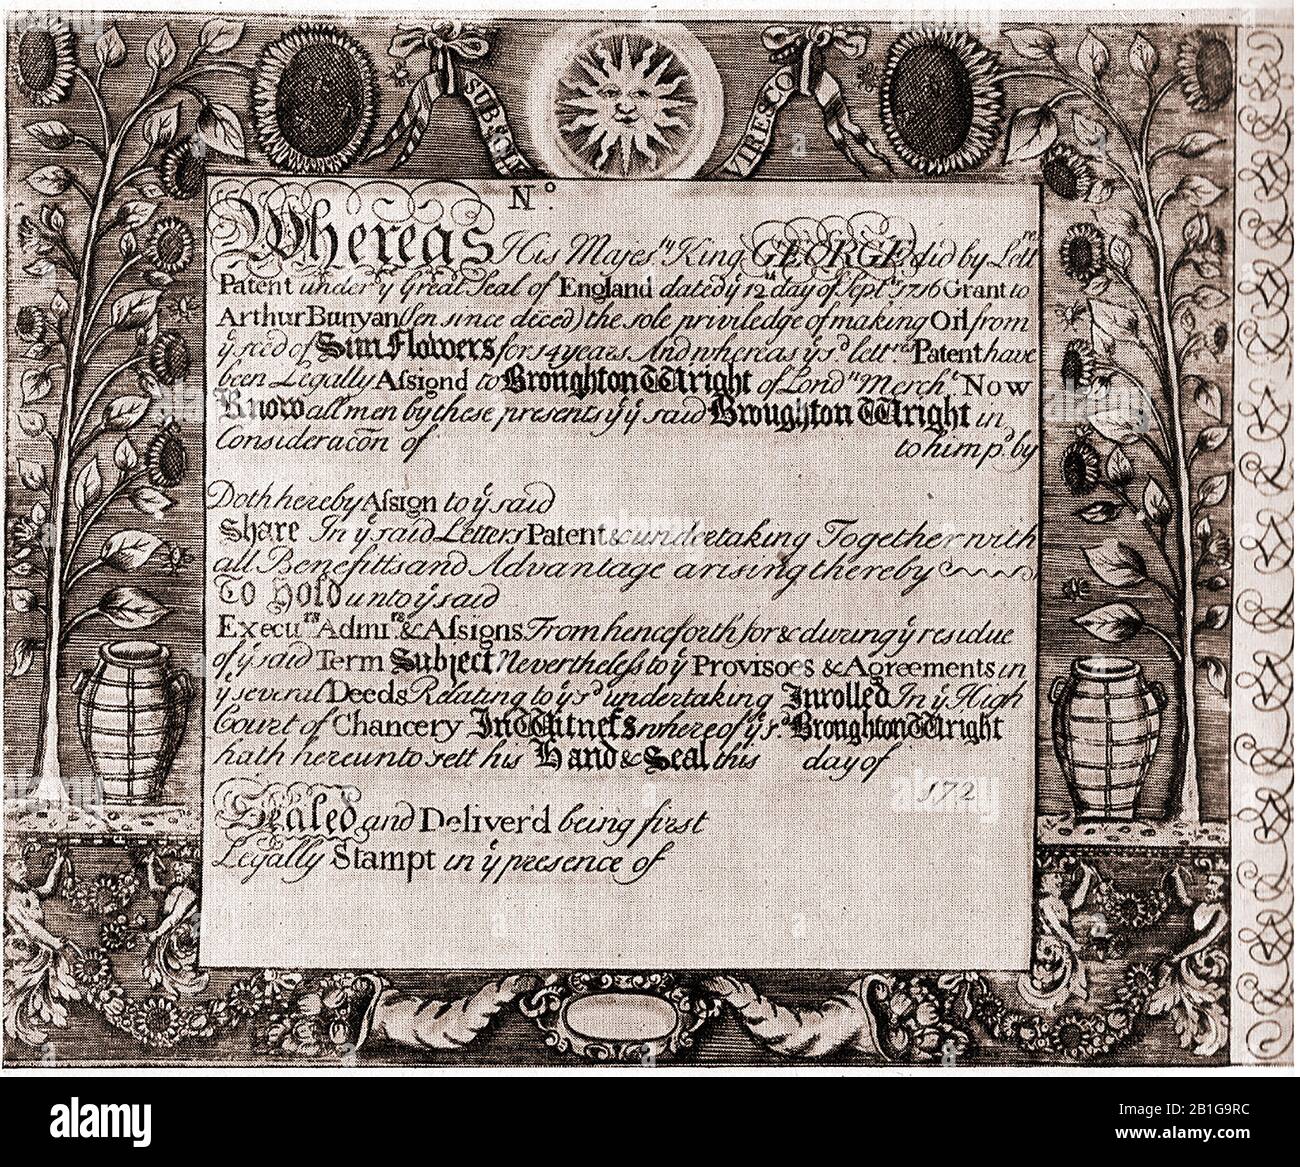 SUB SOLE
VIRESCO
Nº.
Whereas His Majesty King GEORGE did by Lettre
Patent under yᵉ Great Seal of England dated yᵉ 12ᵗʰ day of Septʳ 1716 Grant to
Arthur Bunyan (Sen since deced) the sole priviledge of making Oil from
yᵉ seed of Sun Flowers for 14 years. And whereas yᵉ sᵈ lettʳˢ Patent have
been Legally Aſsignd to Broughton Wright of Londⁿ Merchᵗ Now
Know all men by these presents yᵗ yᵉ said Broughton Wright in
Consideracõn of to him pᵈ by
Doth hereby Aſsign to yᵉ said
Share In yᵉ said Letters Patent & undertaking Together with
all Benefitts and Advantage arising thereby
To Hold unto yᵉ said
Execuʳˢ Admiʳˢ & Aſsigns From henceforth for & during yᵉ residue
of yᵉ said Term Subject Nevertheleſs to yᵉ Provisoes & Agreements in
yᵉ several Deeds Relating to yᵉ sᵈ undertaking Inrolled In yᵉ High
Court of Chancery In Witneſs where of yᵉ sᵈ Broughton Wright
hath hereunto sett his Hand & Seal this day of
172
Sealed and Deliver'd being first
Legally Stampt in yᵉ presence of
alamy
Image ID: 2B1G9RC
www.alamy.com